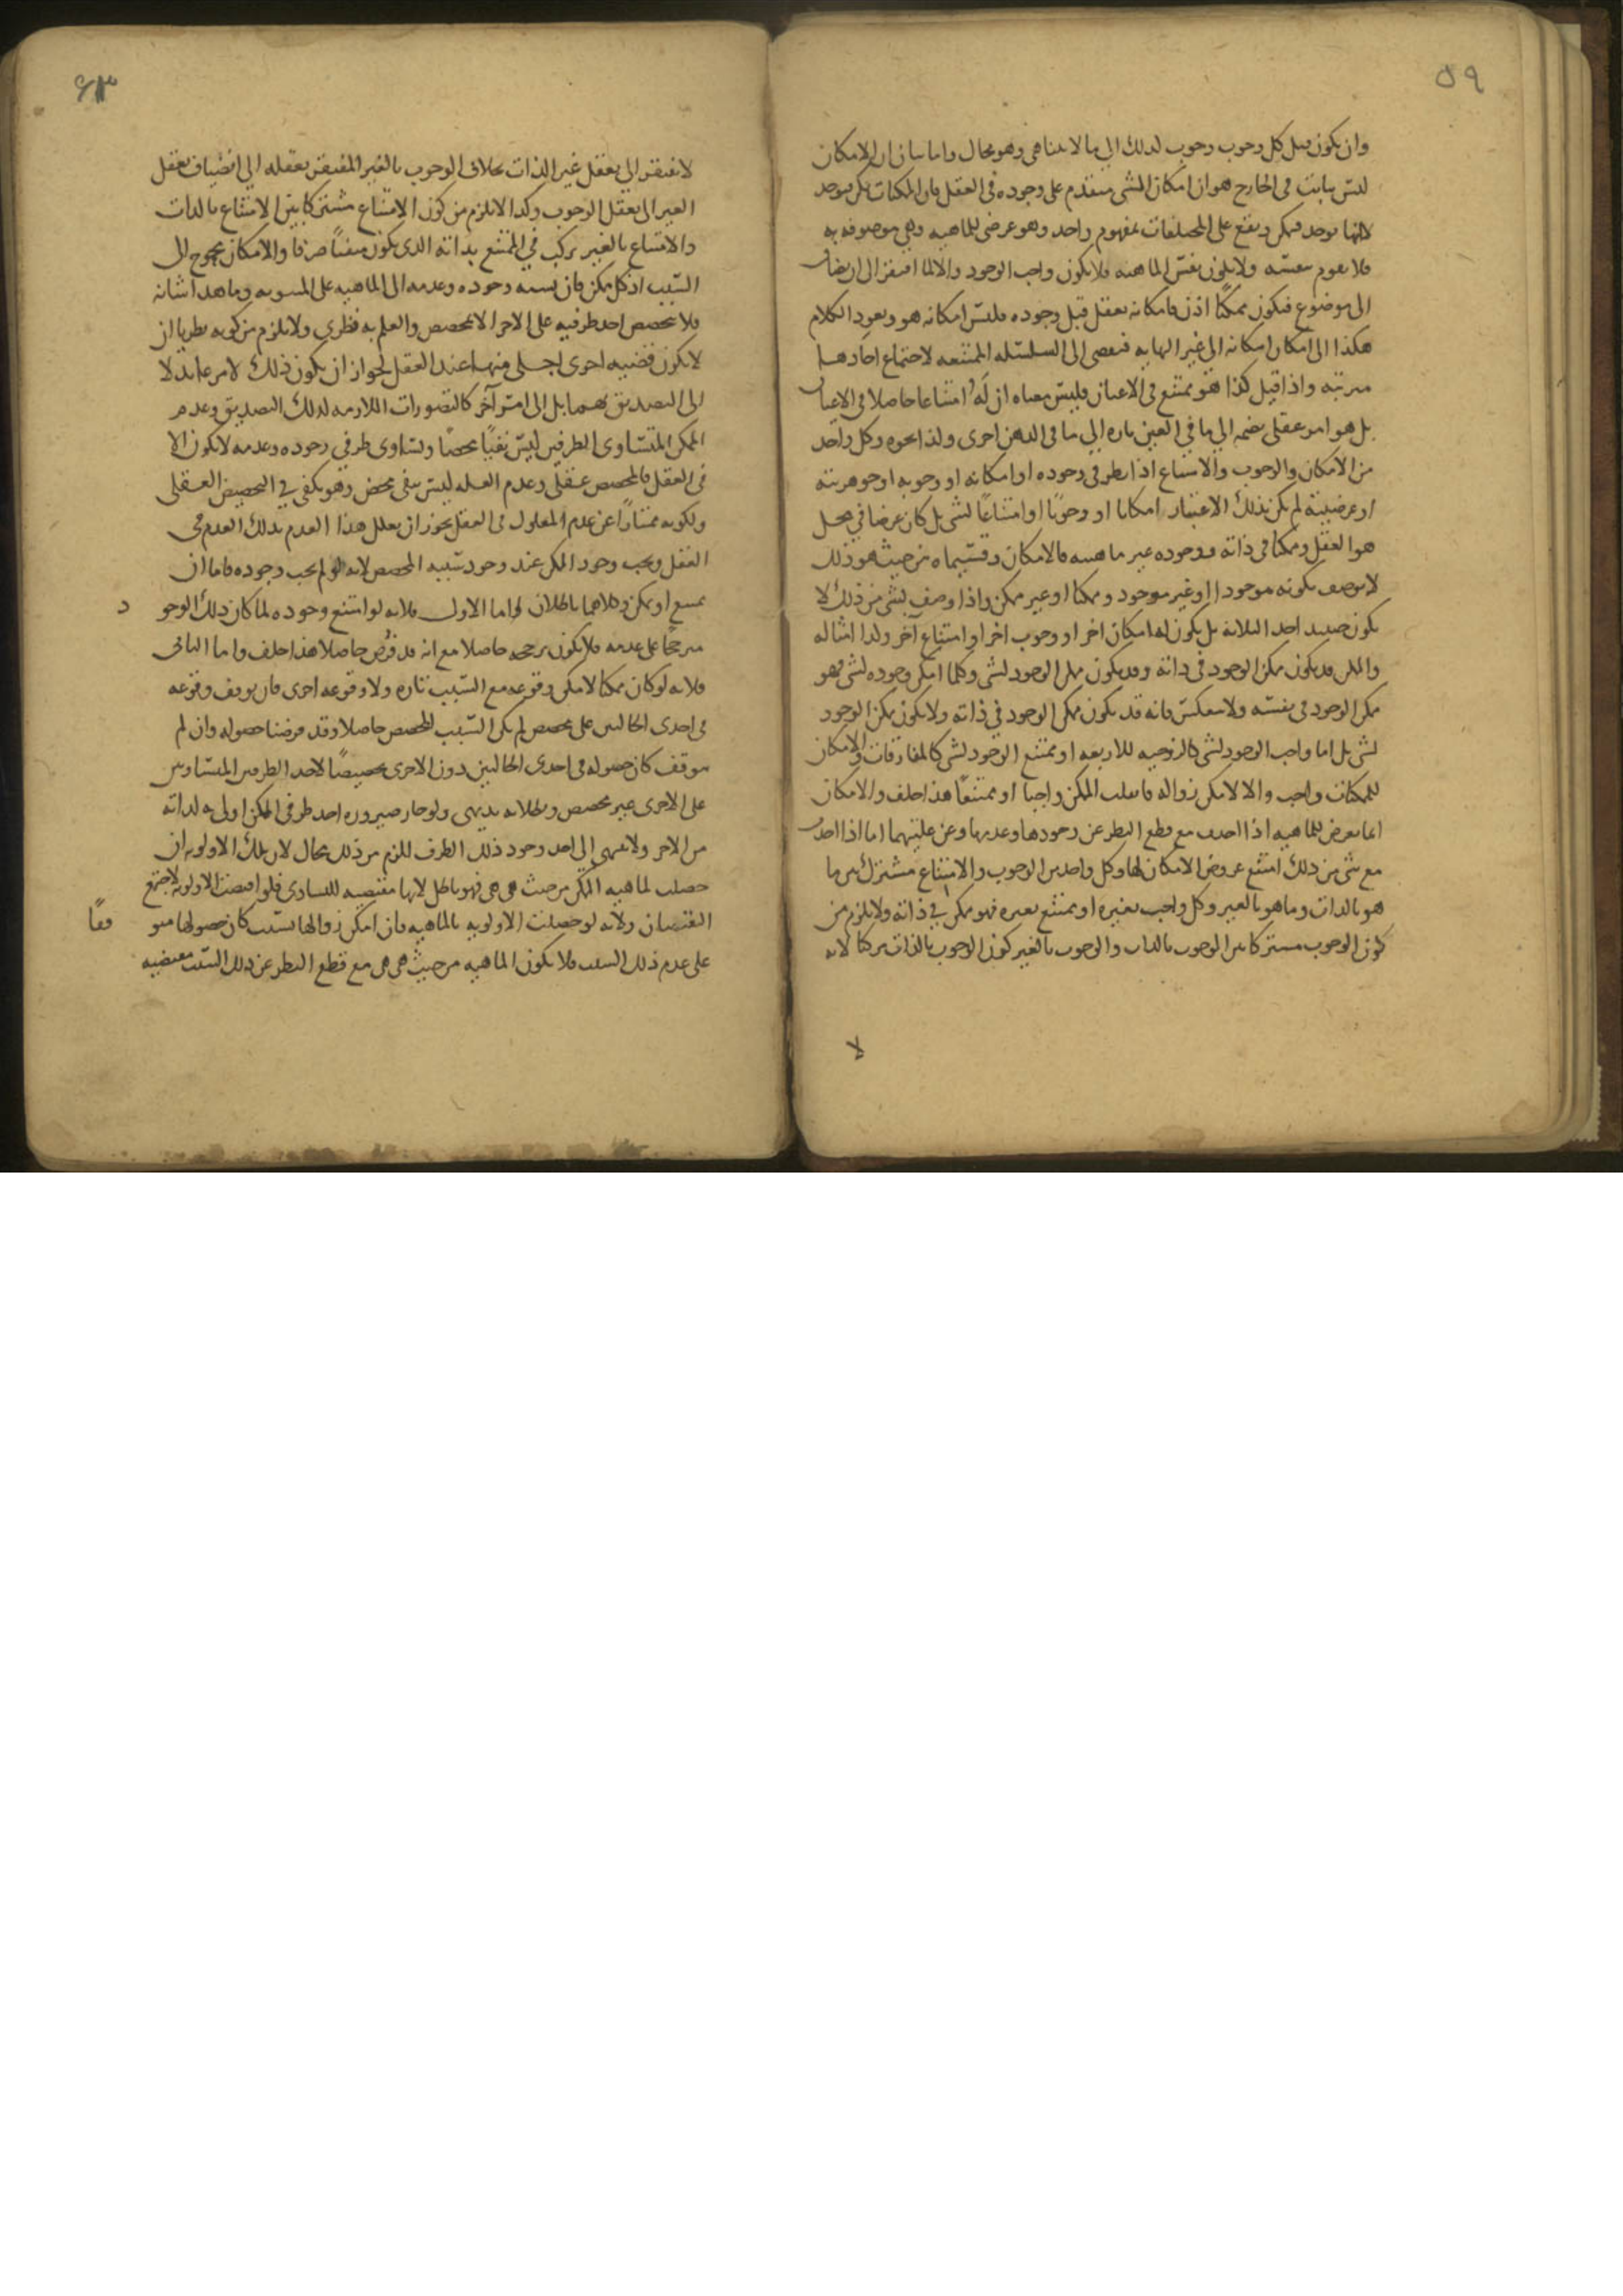 ٥٩
وان يكون قبل كل وجوب وجوب لذلك الى ما لا يتناهى وهو محال واما بيان ان الامكان
ليس بثابت في الخارج هو ان امكان الشى متقدم على وجوده في العقل فان الممكنات تكن فتوجد
لا انها توجد فتمكن ويقع على المختلفات بمفهوم واحد وهو عرضى للماهيه وهى موصوفه به
فلا يقوم بنفسه ولا يكون نفس الماهيه فلا يكون واجب الوجود والا لما افتقر الى ان يضاف
الى موضوع فيكون ممكنًا اذن فامكانه يعقل قبل وجوده فليس امكانه هو ويعود الكلام
هكذا الى امكان امكانه الى غير النهايه فيفضى الى السلسله الممتنعه لاجتماع احادها
مترتبه واذا قيل كذا هو ممتنع في الاعيان فليس معناه ان له امتناعا حاصلا في الاعيان
بل هو امر عقلى يضمه الى ما في العين تاره الى ما في الذهن اخرى وكذا نحوه وكل واحد
من الامكان والوجوب والامتناع اذا نظر في وجوده او امكانه او وجوبه او جوهريته
او عرضيته لم يكن بذلك الاعتبار امكانا او وجوبًا او امتناعًا لشى بل كان عرضا في محل
هو العقل وممكنا في ذاته ووجوده غير ماهيته فالامكان وقسيماه من حيث هو ذلك
لا يوصف بكونه موجودا او غير موجود وممكنا او غير ممكن واذا وصف بشى من ذلك لا
يكون حينئذ احد الثلاثه بل يكون له امكان اخر او وجوب اخر او امتناع آخر وكذا امثاله
والممكن قد يكون ممكن الوجود في ذاته وقد يكون ممكن الوجود لشى وكلما امكن وجوده لشى فهو
ممكن الوجود في نفسه ولا ينعكس فانه قد يكون ممكن الوجود في ذاته ولا يكون ممكن الوجود
لشى بل اما واجب الوجود لشى كالزوجيه للاربعه او ممتنع الوجود لشى كالمفارقات والامكان
للممكنات واجب والا لامكن زواله فانقلب الممكن واجبا او ممتنعًا هذا خلف والامكان
انما يعرض للماهيه اذا اخذت مع قطع النظر عن وجودها وعدمها وعن علتيهما اما اذا اخذت
مع شى من ذلك امتنع عروض الامكان لها وكل واحد من الوجوب والامتناع مشترك بين ما
هو بالذات وما هو بالغير وكل واجب بغيره او ممتنع بغيره فهو ممكن في ذاته ولا يلزم من
كون الوجوب مشتركا بين الوجوب بالذات والوجوب بالغير كون الوجوب بالذات مركبا لانه
لا
٦٣
لا يفتقر الى تعقل غير الذات بخلاف الوجوب بالغير المفتقر تعقله الى انضياف تعقل
الغير الى تعقل الوجوب وكذا لا يلزم من كون الامتناع مشتركا بين الامتناع بالذات
والامتناع بالغير تركيب في الممتنع بذاته الذى يكون منفيًا صرفا والامكان محوج الى
السبب اذ كل ممكن فان نسبه وجوده وعدمه الى الماهيه على السويه وما هذا شانه
فلا يتخصص احد طرفيه على الاخر الا بمخصص والعلم به فطرى ولا يلزم من كونه فطريا ان
لا يكون قضيه اخرى اجلى منها عند العقل لجواز ان يكون ذلك لامر عائد لا
الى التصديق بهما بل الى امر آخر كالتصورات اللازمه لذلك التصديق وعدم
الممكن المتساوى الطرفين ليس نفيًا محضًا وتساوى طرفي وجوده وعدمه لا يكون الا
في العقل فالمخصص عقلى وعدم العله ليس بنفى محض وهو يكفى في التخصيص العقلى
ولكونه ممتازًا عن عدم المعلول في العقل يجوز ان يعلل هذا العدم بذلك العدم في
العقل ويجب وجود الممكن عند وجود سببه المخصص لانه لو لم يجب وجوده فاما ان
يمتنع او يمكن وكلاهما باطلان اما الاول فلانه لو امتنع وجوده لما كان ذلك الوجو د
مرجحًا على عدمه فلا يكون مرجحه حاصلا مع انه قد فرض حاصلا هذا خلف واما الثانى
فلانه لو كان ممكنا لامكن وقوعه مع السبب تاره ولا وقوعه اخرى فان توقف وقوعه
في احدى الحالتين على مخصص لم يكن السبب المخصص حاصلا وقد فرضنا حصوله وان لم
يتوقف كان حصوله في احدى الحالتين دون الاخرى تخصيصًا لاحد الطرفين المتساويين
على الاخرى بغير مخصص وبطلانه بديهى ولو جاز صيروره احد طرفى الممكن اولى به لذاته
من الاخر ولا ينتهى الى حد وجود ذلك الطرف للزم من ذلك محال لان تلك الاولويه ان
حصلت لماهيه الممكن من حيث هى هى فهو باطل لانها مقتضيه للتساوى فلو اقتضت الاولويه لاجتمع
النقيضان ولانه لو حصلت الاولويه بالماهيه فان امكن زوالها بسبب كان حصولها متو قفًا
على عدم ذلك السبب فلا يكون الماهيه من حيث هى هى مع قطع النظر عن ذلك السبب مقتضيه